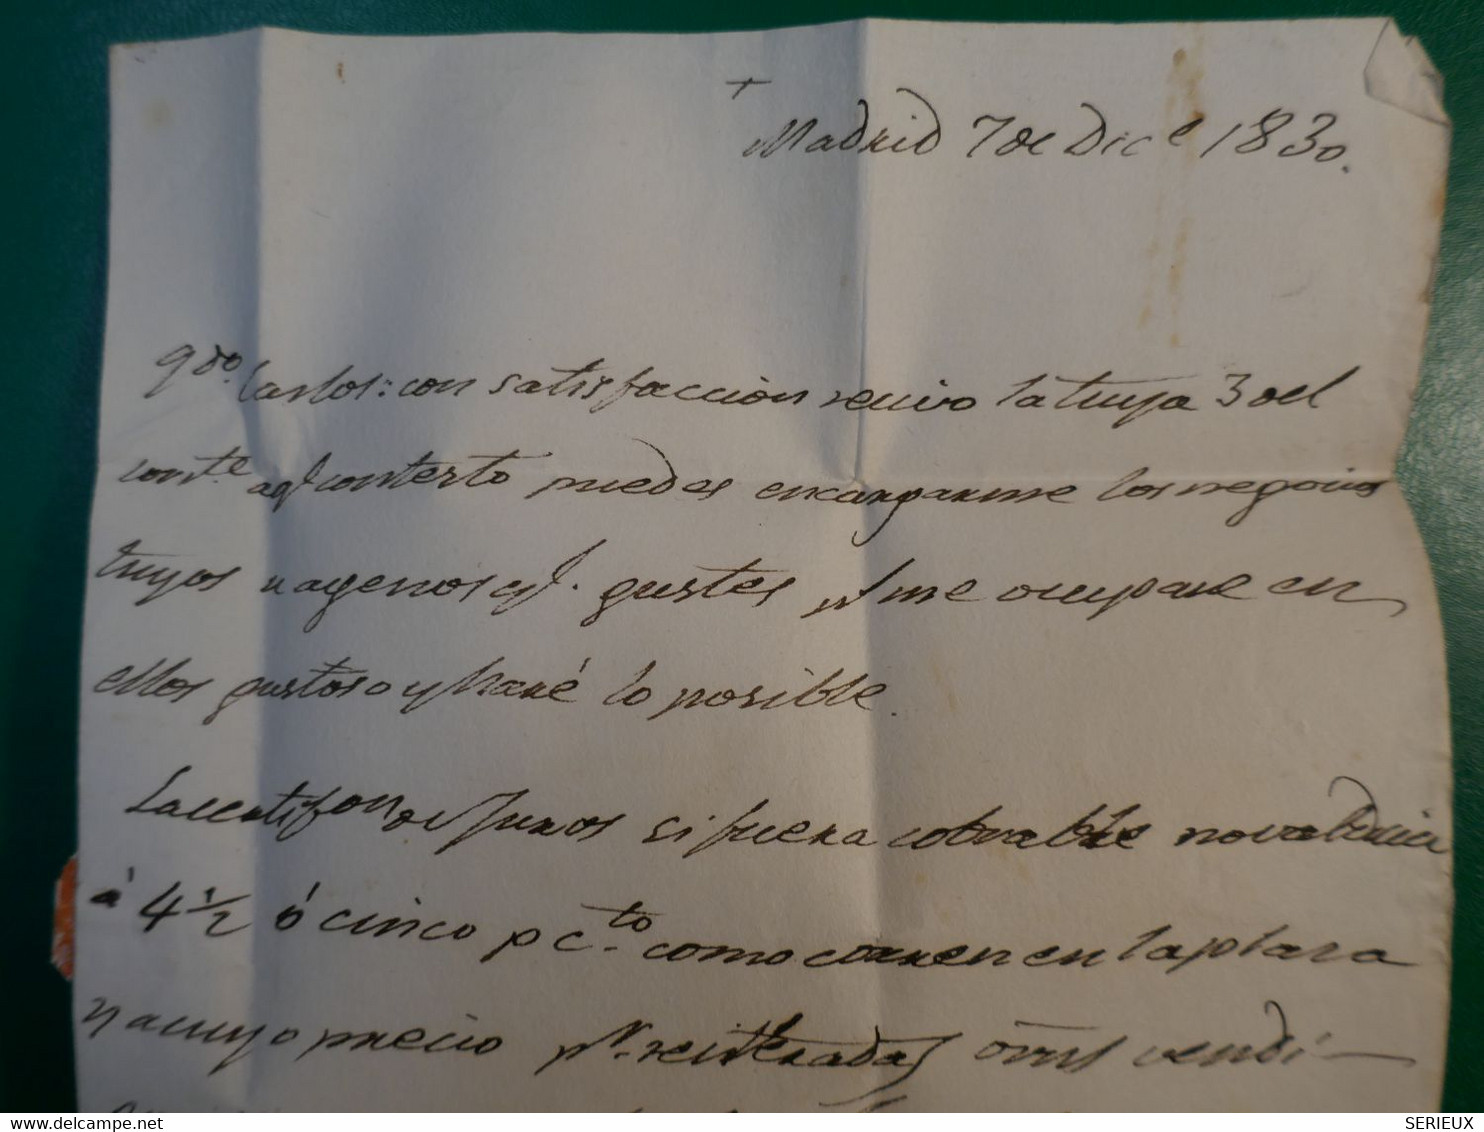 +
Madrid 7 de Dic.e 1830.
qdo. Carlos: con satisfaccion recivo la tuya 3 del
corrte. aql contexto puedes encargarme los negocios
tuyos u agenos q.l gustes me ocupare en
ellos gustoso y haré lo posible.
La certifon. de Juros si fuera cobrable no valdria
á 4 1/2 ó cinco p cto. como corren en la plaza
y a cuyo precio pr. reiteradas orns vendi-
SERIEUX